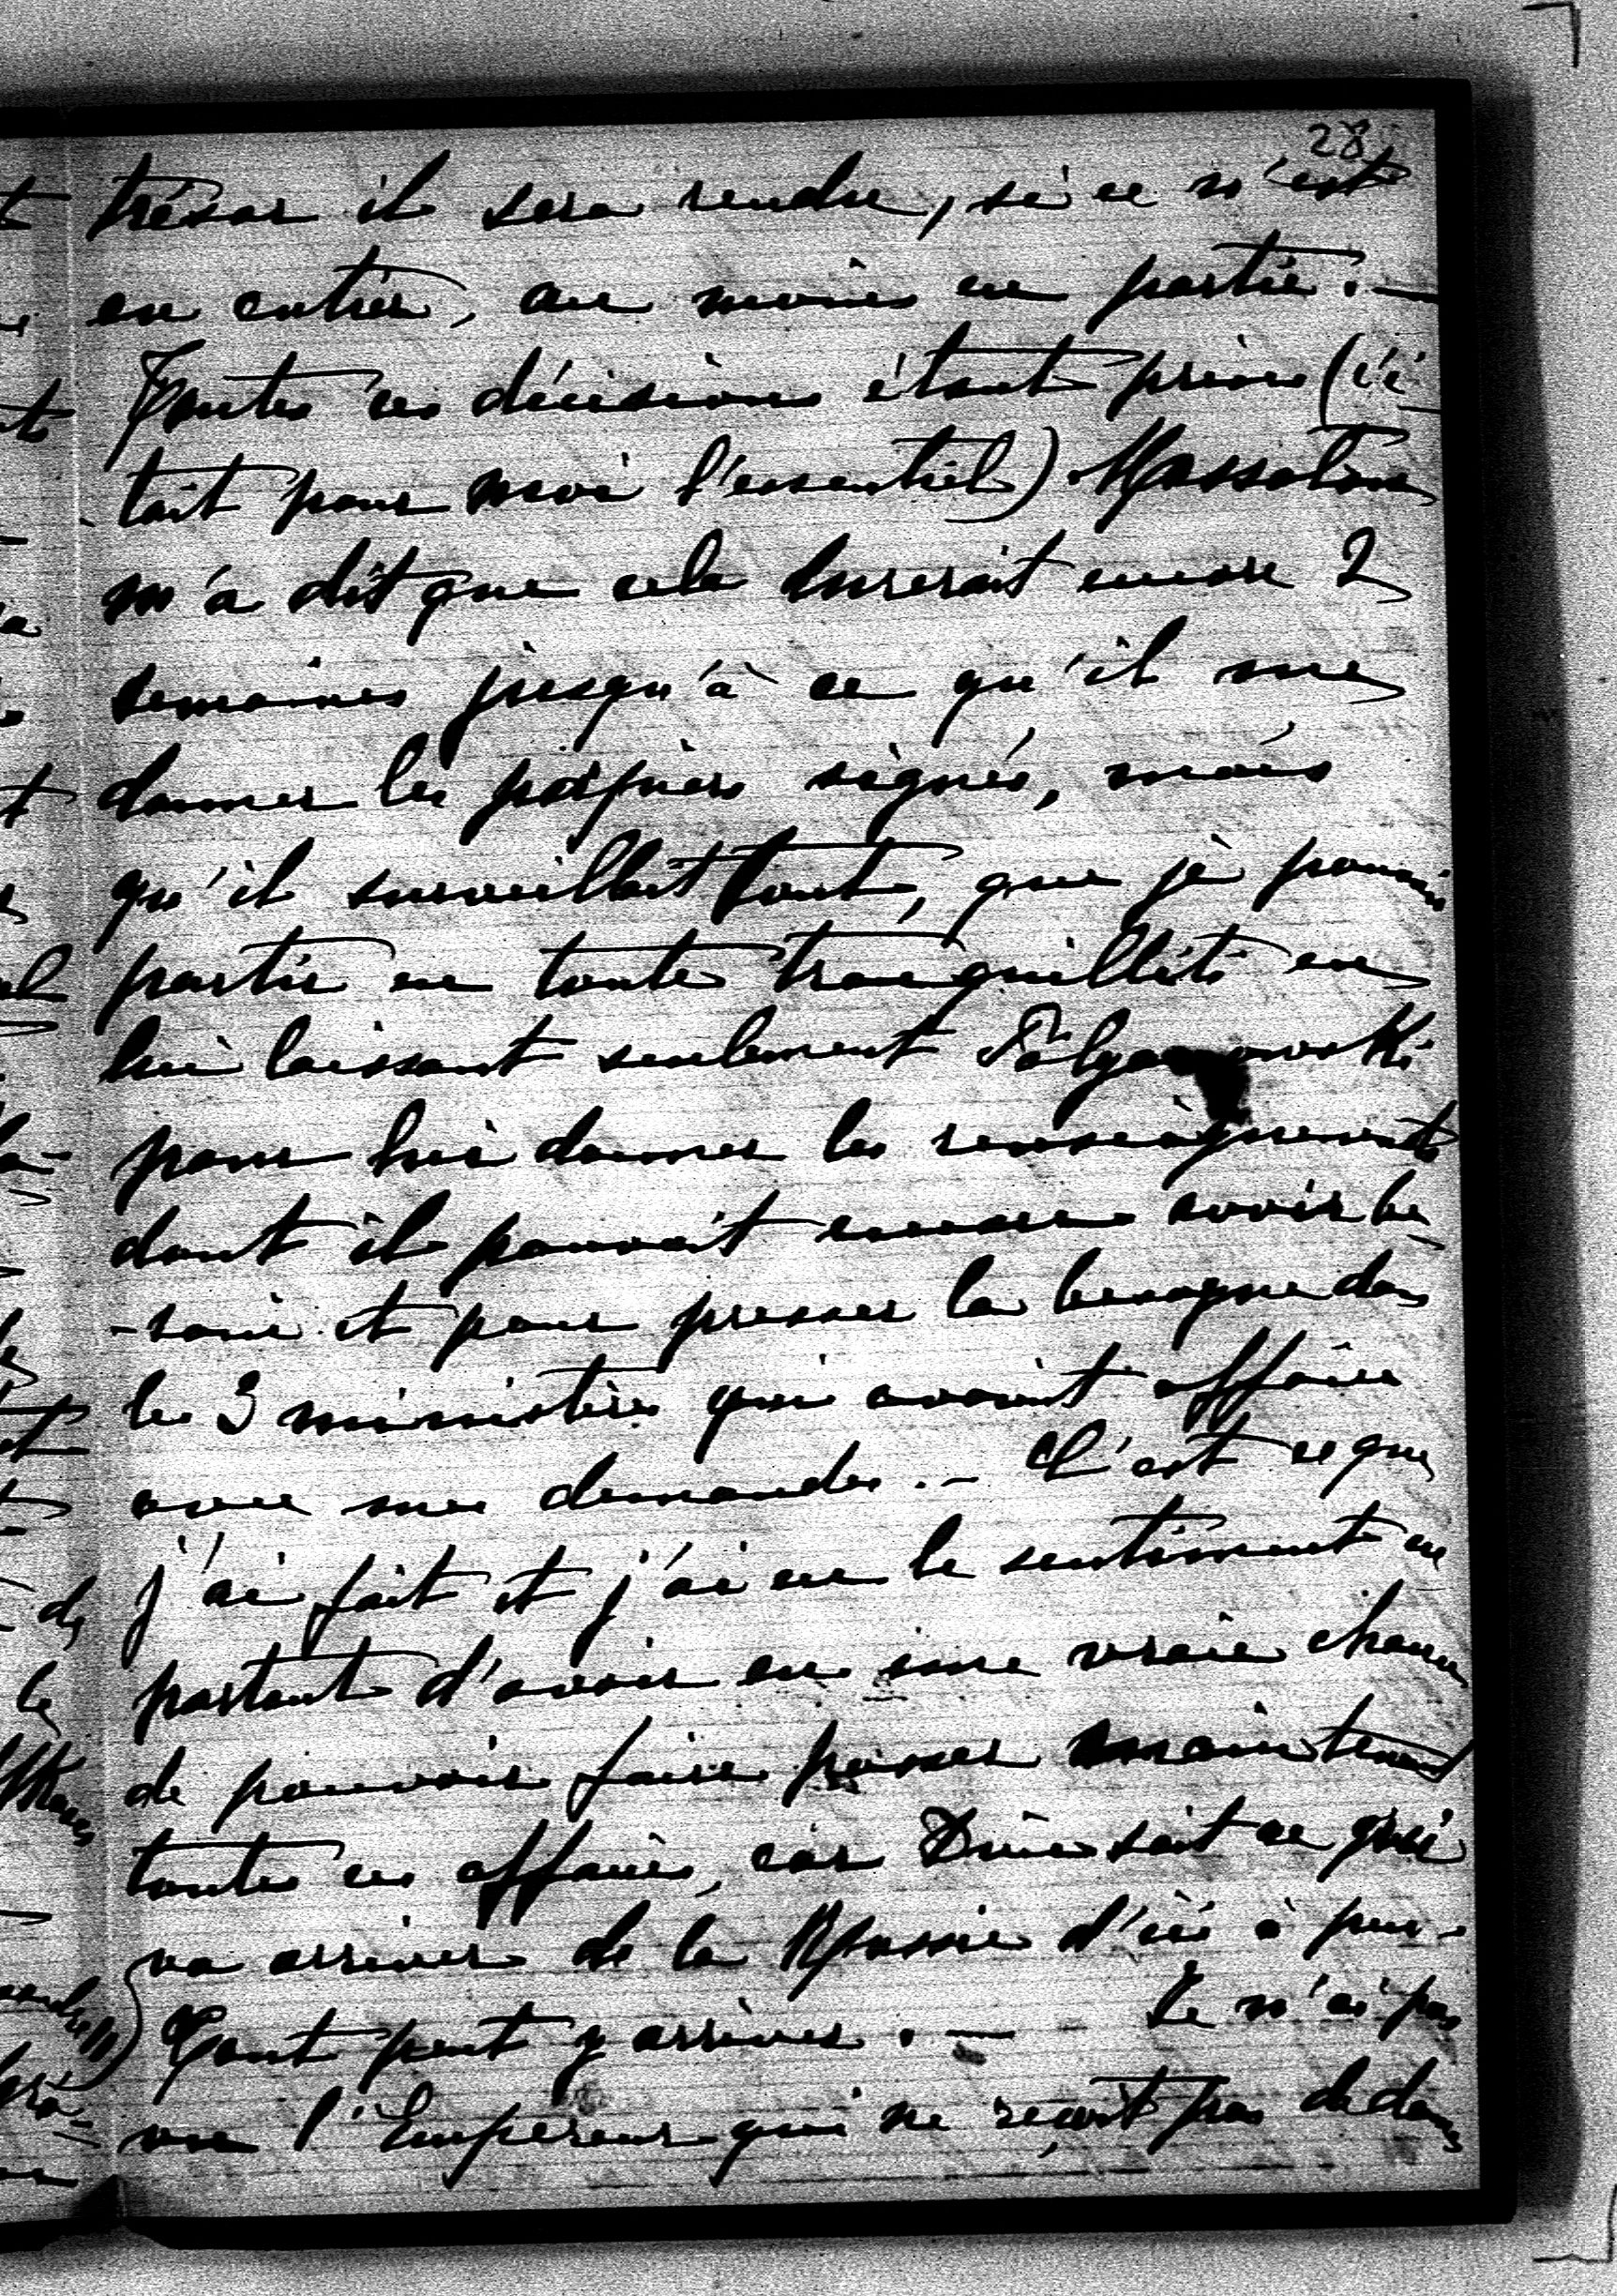 28
trésor il sera rendu, si ce n'est
en entier, au moins en partie. —
Toutes ces décisions étant prises (c'é-
tait pour moi l'essentiel) Massolow
m'a dit que cela durerait encore 2
semaines jusqu'à ce qu'il me
donner les papiers signés, mais
qu'il surveillait tout, que je pouvais
partir en toute tranquillité en
lui laissant seulement
pour lui donner les renseignements
dont il pouvait encore avoir be-
-soin et pour presser la besogne dans
les 3 ministères qui avaient affaire
avec mes demandes. — C'est ce que
j'ai fait et j'ai eu le sentiment en
partant d'avoir eu une vraie chance
de pouvoir faire passer maintenant
toutes ces affaires, car Dieu sait ce qui
va arriver de la Russie d'ici à peu. -
Tout peut y arriver. — Je n'ai pas
vu l'Empereur qui ne reçoit pas de dames